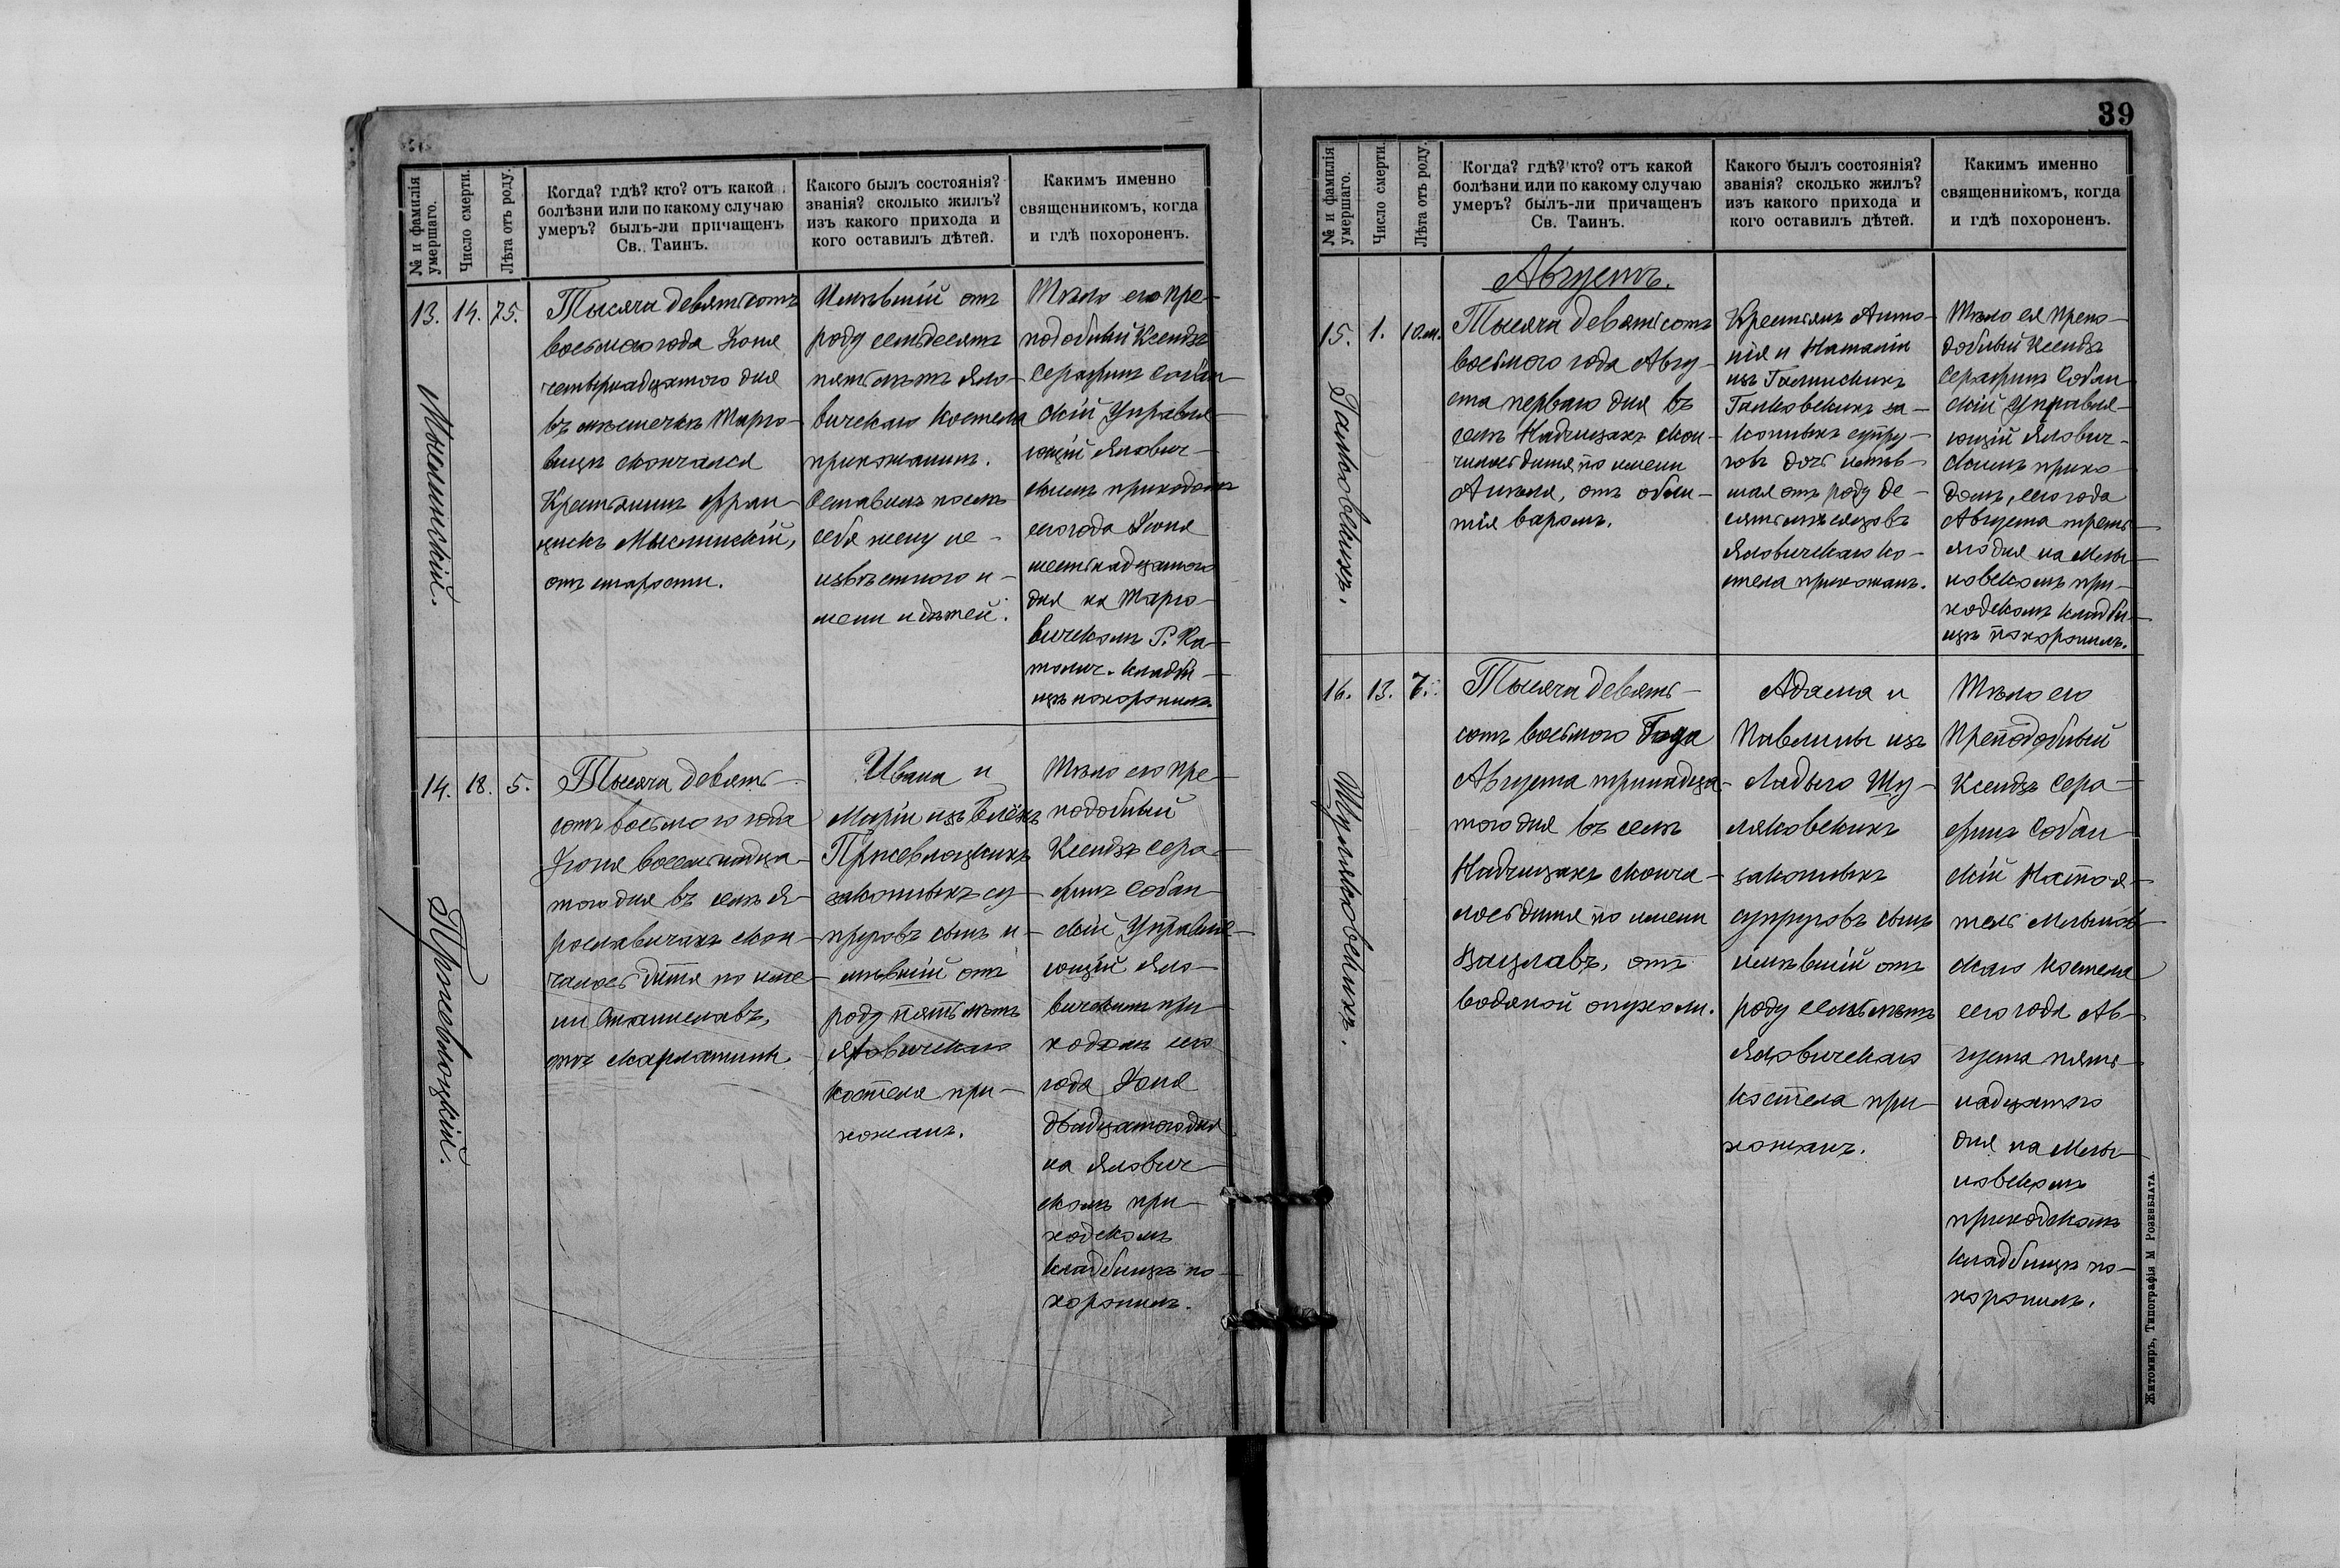 № и фамилія
умершаго.
Число смерти.
Лѣта отъ роду.
Когда? гдѣ? кто? отъ какой
болѣзни или по какому случаю
умеръ? былъ-ли причащенъ
Св. Таинъ.
Какого былъ состоянія?
званія? сколько жилъ?
изъ какого прихода и
кого оставилъ дѣтей.
Какимъ именно
священникомъ, когда
и гдѣ похороненъ.
13.
Мыслинскій.
14.
75.
Тысяча девятьсотъ
восьмого года Іюня
четырнадцатого дня
въ мѣстечкѣ Торго-
вицѣ скончался
Крестьянинъ Фран-
цискъ Мыслинскій,
отъ старости.
Имѣвшій отъ
роду семьдесятъ
пять лѣтъ Яло-
вичскаго костела
прихожанинъ.
Оставилъ послѣ
себя жену не-
извѣстного и-
мени и дѣтей.
Тѣло его пре-
подобный Ксендзъ
Серафимъ Собан-
скій Управля-
ющійЯлович-
скимъ приходомъ
сего года Іюня
шестнадцатого
дня на Торго-
вичскомъ Р. Ка-
толич. кладби-
щѣ похоронилъ.
14.
Пржевлоцкій.
18.
5.
Тысяча девять-
сотъ восьмого года
Іюня восемнадца-
того дня въ селѣ Я-
рославичахъ скон-
чалось дитя по име-
ни Станиславъ,
отъ скарлатины.
Ивана и
Маріи изъ
Пржевлоцкихъ
законныхъ су-
пруговъ сынъ и-
мѣвшій отъ
роду пять лѣтъ
Яловичскаго
костела при-
хожанъ.
Тѣло его пре-
подобный
Ксендзъ Сера-
фимъ Собан-
скій Управля-
ющій Яло-
вичскимъ при-
ходомъ сего
года Іюня
двадцатого дня
на Ялович-
скомъ при-
ходскомъ
кладбищѣ по-
хоронилъ.
39
№ и фамилія
умершаго.
Число смерти.
Лѣта отъ роду.
Когда? гдѣ? кто? отъ какой
болѣзни или по какому случаю
умеръ? былъ-ли причащенъ
Св. Таинъ.
Какого былъ состоянія?
званія? сколько жилъ?
изъ какого прихода и
кого оставилъ дѣтей.
Какимъ именно
священникомъ, когда
и гдѣ похороненъ.
Августъ.
15.
1.
10 м.
Тысяча девятьсотъ
восьмого года Авгу-
ста перваго дня въ
селѣ Надчицахъ скон-
чилась дитя по имени
Анѣля, отъ обли-
тія варомъ.
Крестьянъ Анто-
нія и Наталіи
изъ
за-
конныхъ супру-
говъ дочь имѣв-
шая отъ роду де-
сять мѣсяцовъ
Яловичскаго ко-
стела прихожанъ.
Тѣло ея Препо-
добный Ксендзъ
Серафимъ Собан-
скій Управля-
ющійЯлович-
скимъ прихо-
домъ, сего года
Августа треть-
яго дня на Млы-
новскомъ при-
ходскомъ кладби-
щѣ похоронилъ.
16.
Шуляковскихъ.
13.
7.
Тысяча девять-
сотъ восьмого Года
Августа тринадца-
того дня въ селѣ
Надчицахъ сконча-
лось дитя по имени
Вацлавъ, отъ
водяной опухоли.
Адама и
Павлины изъ
Шу-
ляковскихъ
законныхъ
супруговъ сынъ
имѣвшій отъ
роду семь лѣтъ
Яловичскаго
костела при-
хожанъ.
Тѣло его
Преподобный
Ксендзъ Сера-
фимъ Собан-
скій Настоя-
тель Млынов-
скаго костела
сего года Ав-
густа пят-
надцатого
дня на Млы-
новскомъ
приходскомъ
кладбищѣ по-
хоронилъ.
Житомиръ, Типографія М Розенблата.